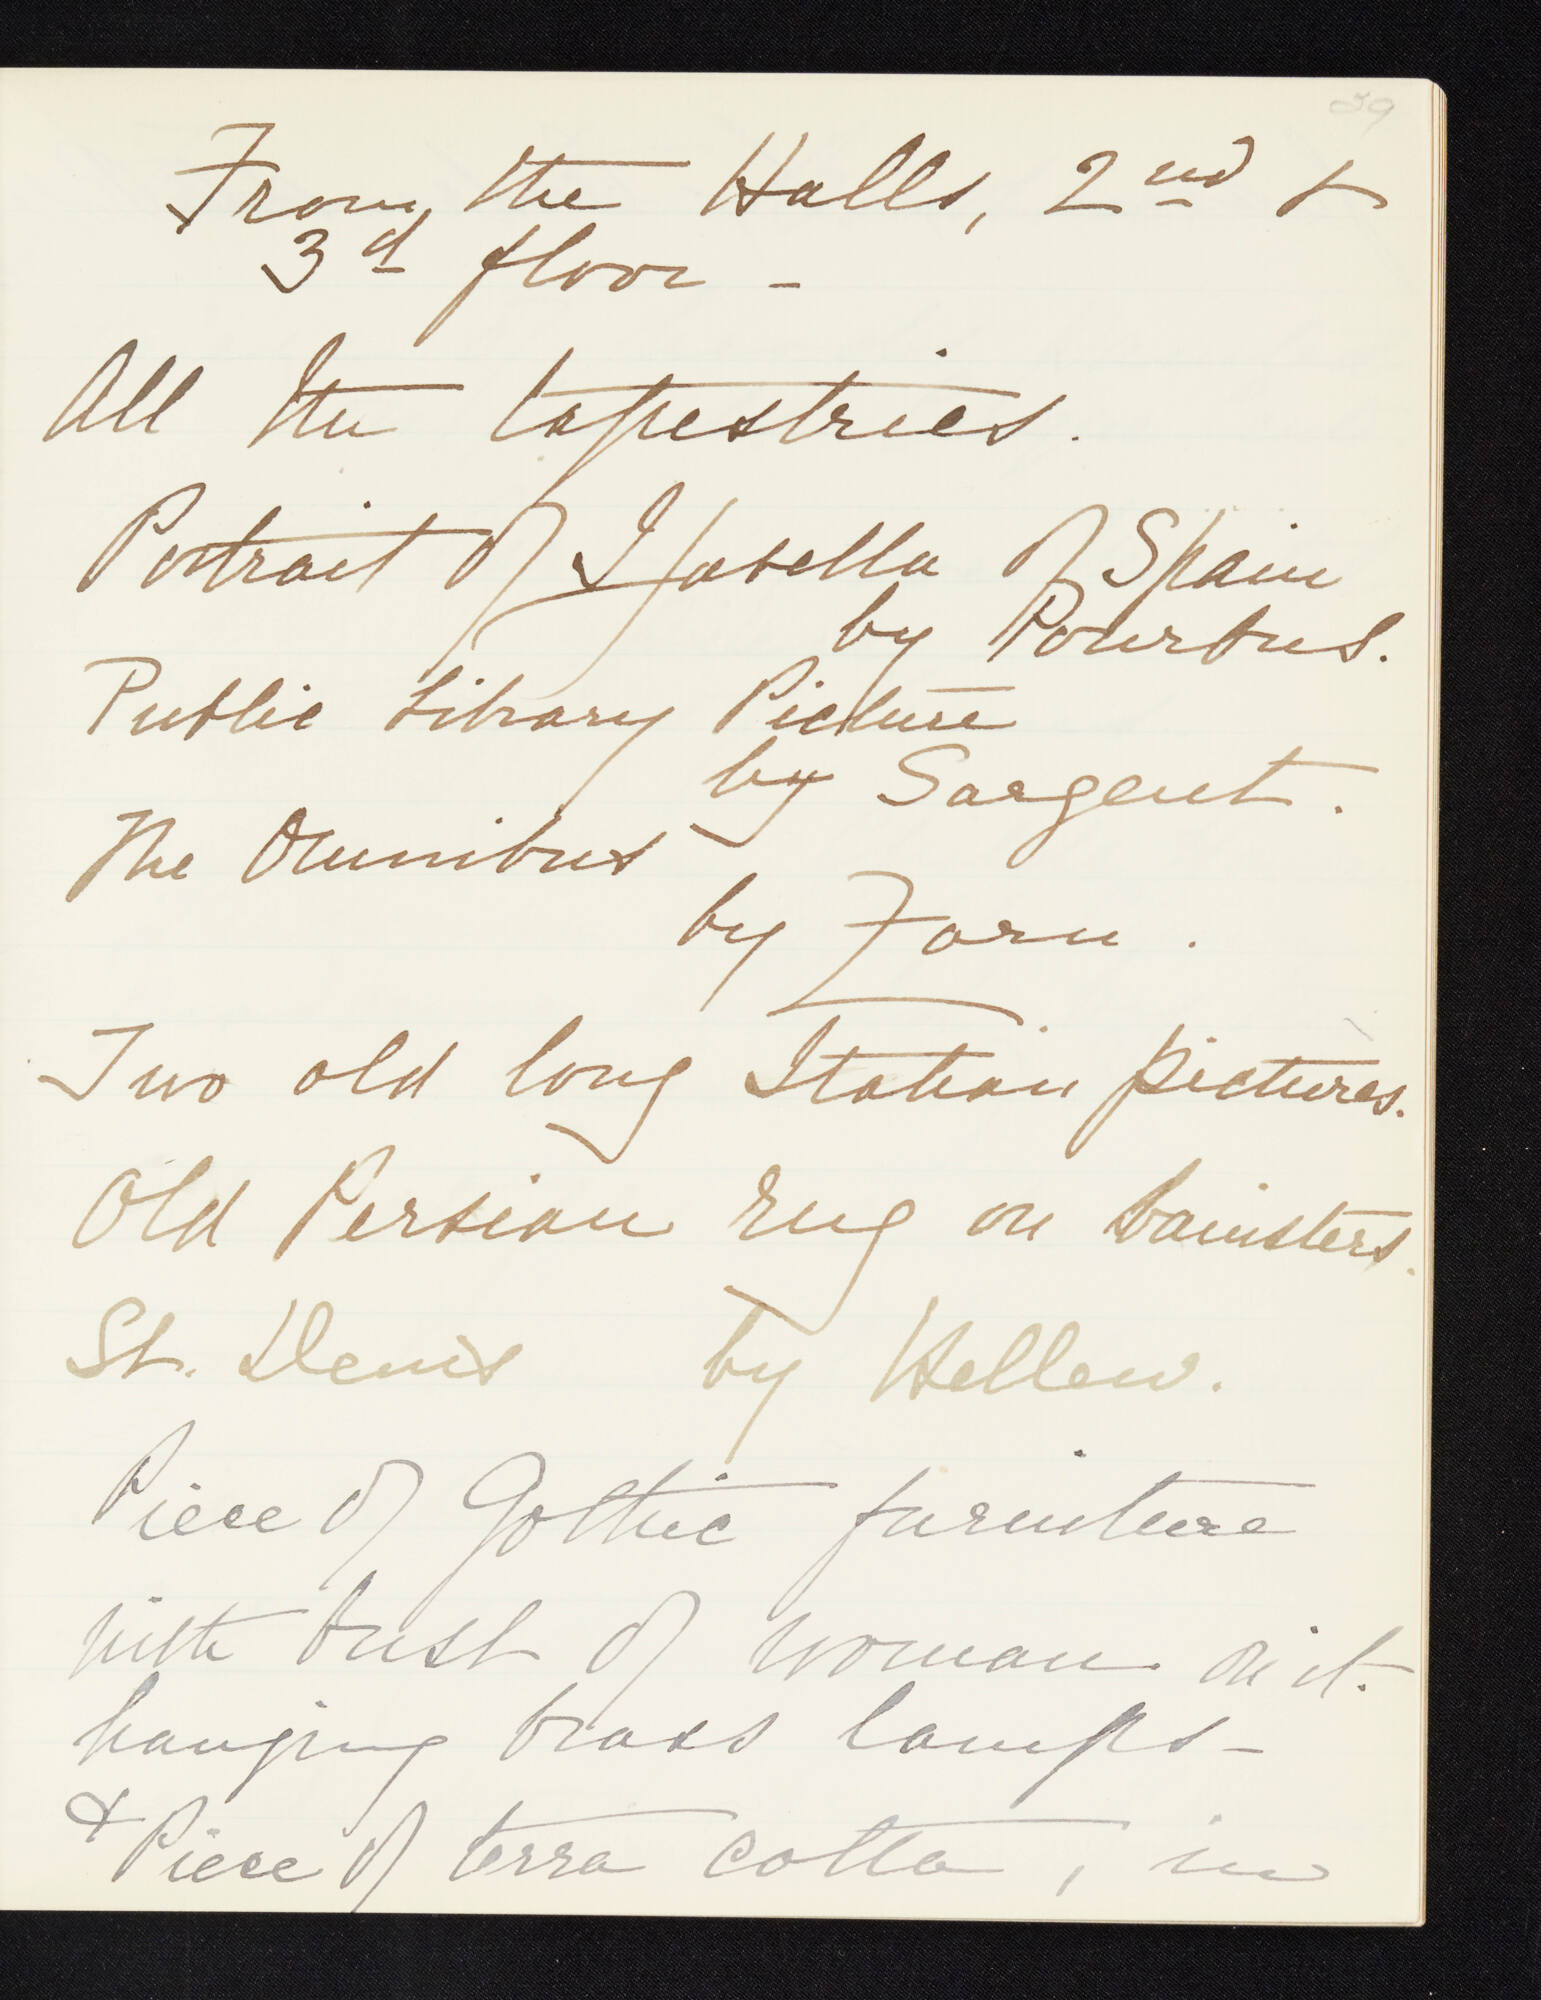 59
From the Halls, 2nd &
3d floor -
All the tapestries.
Portrait of Isabella of Spain
by Pourbus.
Public Library Picture
by Sargent.
The Omnibus
by Zorn.
Two old long Italian pictures.
Old Persian rug on banisters.
St. Denis by Helleu.
Piece of Gothic furniture
with bust of woman on it.
hanging brass lamps -
& Piece of terra cotta, in